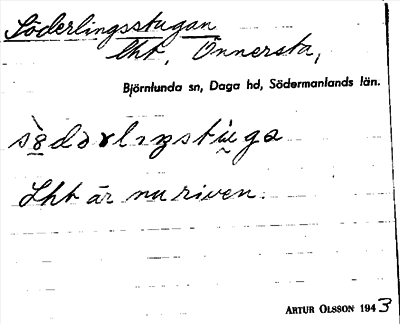 Söderlingsstugan
lht, Önnersta,
Björnlunda sn, Daga hd, Södermanlands län.
Lht är nu riven.
ARTUR OLSSON 1943